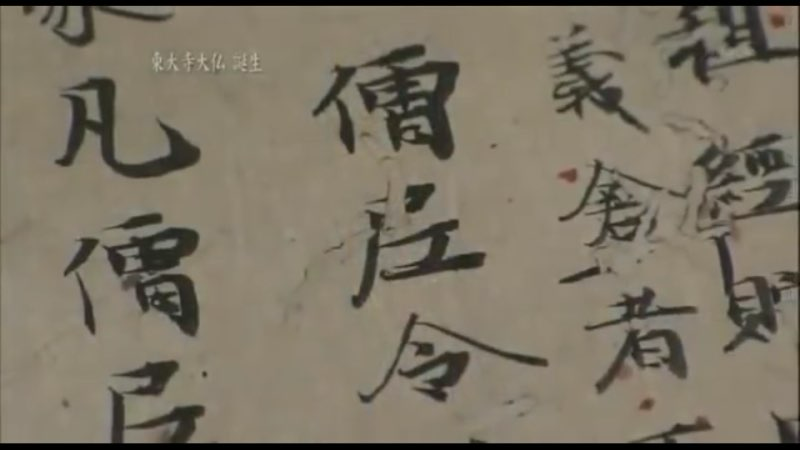 東大寺大仏 誕生
經
義倉者
僧尼令
凡僧尼